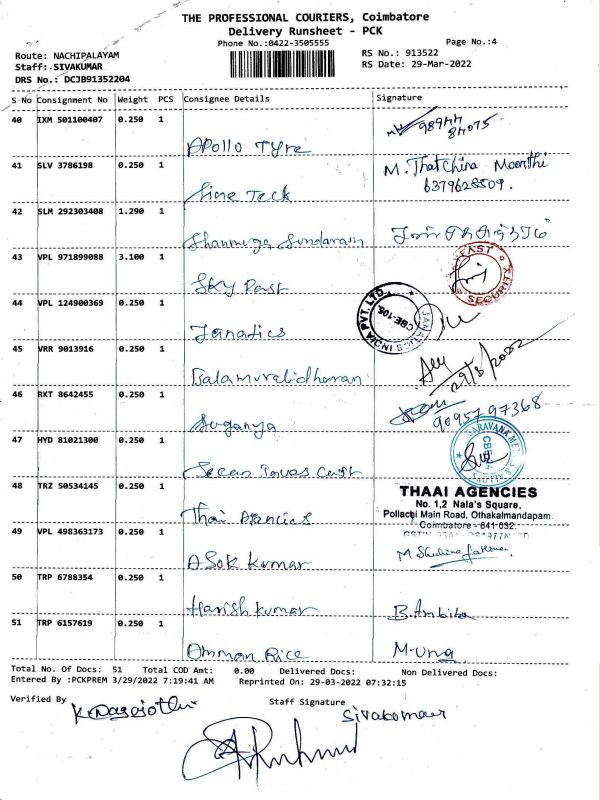 THE PROFESSIONAL COURIERS, Coimbatore
Delivery Runsheet - PCK
Phone No.:0422-3505555
Page No.:4
Route: NACHIPALAYAM
RS No.: 913522
Staff: SIVAKUMAR
RS Date: 29-Mar-2022
DRS No.: DCJB91352204
S No Consignment No Weight PCS Consignee Details Signature
40 IXM 501100407 0.250 1
98944
84075
Apollo Tyre
41 SLV 3786198 0.250 1
M. Thatchina Moorthi
6379628509.
Teck
42 SLM 292303408 1.290 1
Shanmuga Sundaram
43 VPL 971899088 3.100 1
EAST
SECURITY
Sky
44 VPL 124900369 0.250 1
JANATICS INDIA PVT. LTD.
CBE-105
Janatics
45 VRR 9013916 0.250 1
29/3/2022
Balamuralidharan
46 RKT 8642455 0.250 1
9095797368
Suganya
47 HYD 81021300 0.250 1
48 TRZ 50534145 0.250 1
THAAI AGENCIES
No. 1,2 Nala's Square,
Pollachi Main Road, Othakalmandapam
Coimbatore - 641 032.
Thai Agencies
49 VPL 498363173 0.250 1
ASok kumar
50 TRP 6788354 0.250 1
Harish kumar
B. Ambika
51 TRP 6157619 0.250 1
Amman Rice
M. Uma
Total No. Of Docs: 51 Total COD Amt: 0.00 Delivered Docs: Non Delivered Docs:
Entered By :PCKPREM 3/29/2022 7:19:41 AM Reprinted On: 29-03-2022 07:32:15
Verified By
Staff Signature
K. Nagajothi
Sivakumar